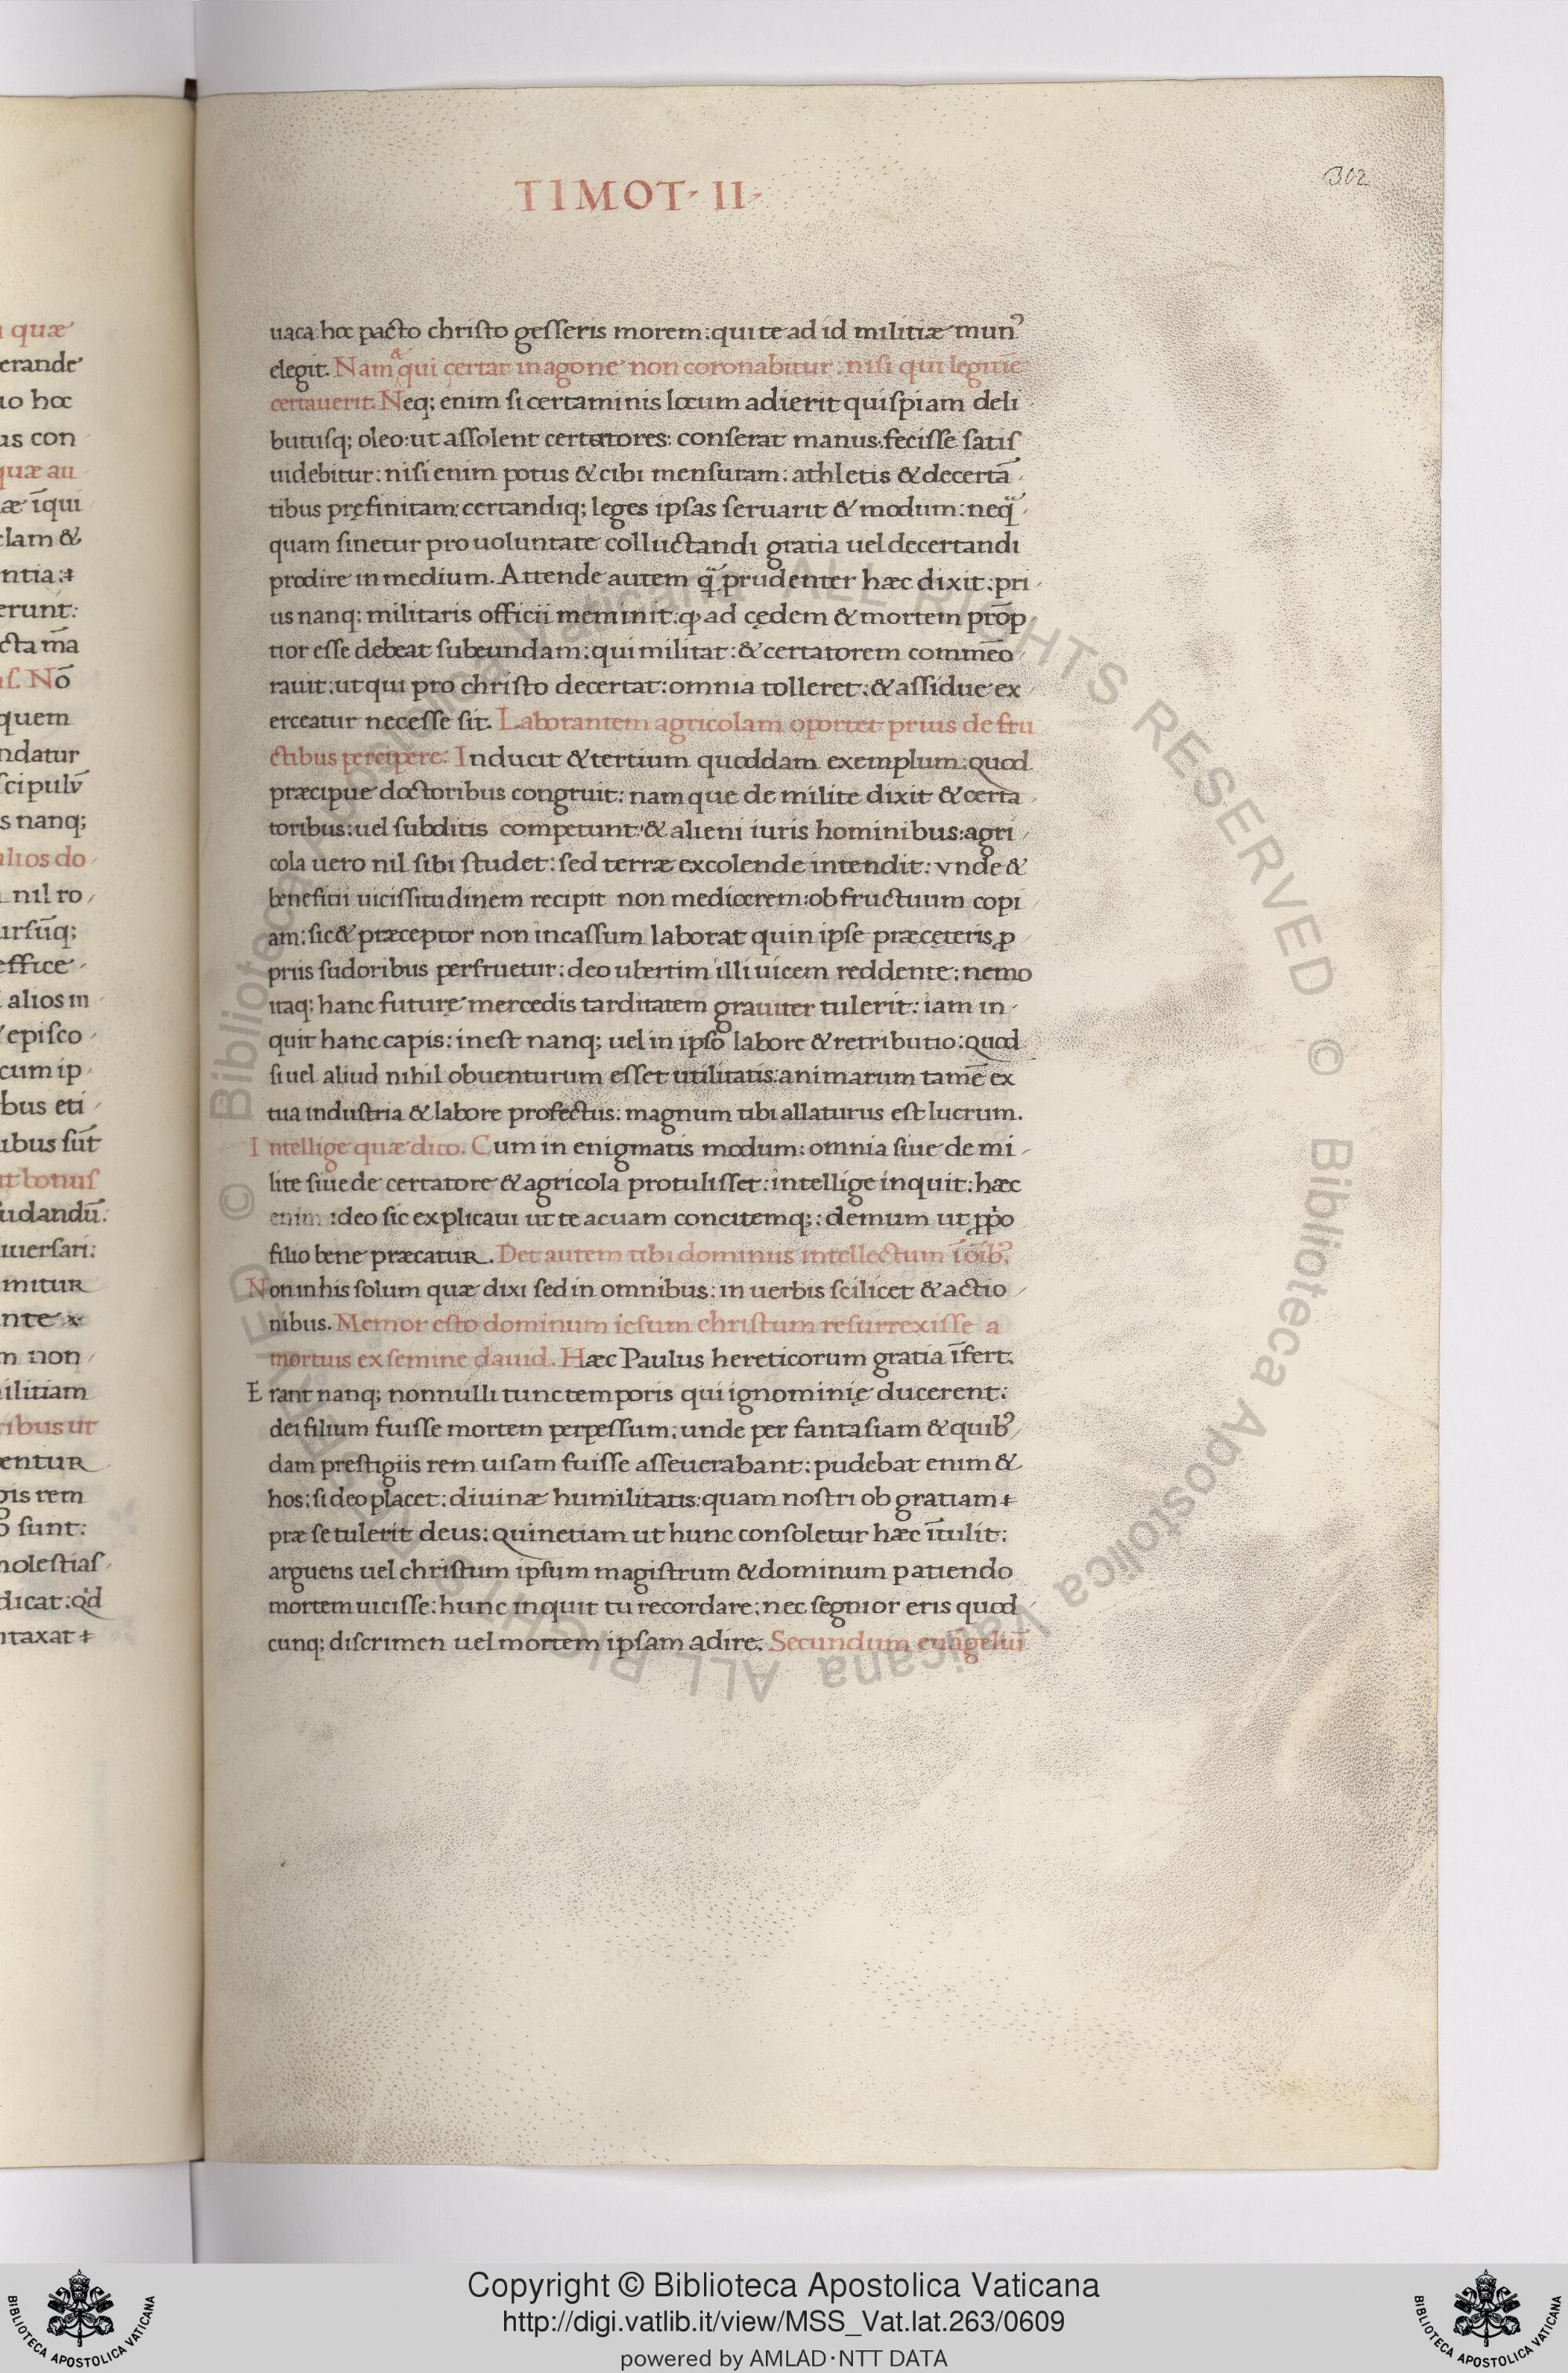 TIMOT· II·
302
uaca: hoc pacto christo gesseris morem: qui te ad id militiæ munꝰ
elegit. Nam & qui certat in agone non coronabitur: nisi qui legitīe
certauerit. Neq; enim si certaminis locum adierit quispiam deli
butusq; oleo: ut assolent certatores: conserat manus: fecisse satis
uidebitur: nisi enim potus & cibi mensuram: athletis & decertā
tibus pręfinitam: certandiq; leges ipsas seruarit & modum: neq̈
quam sinetur pro uoluntate colluctandi gratia uel decertandi
prodire in medium. Attende autem q̈ prudenter hæc dixit: pri
us nanq; militaris officii meminit: ꝙ ad cędem & mortem prōp
tior esse debeat subeundam: qui militat: & certatorem commēo
rauit: ut qui pro christo decertat: omnia tolleret: & assidue ex
erceatur necesse sit. Laborantem agricolam oportet prius de fru
ctibus percipere. Inducit & tertium quoddam exemplum: quod
præcipue doctoribus congruit: nam que de milite dixit & certa
toribus: uel subditis competunt: & alieni iuris hominibus: agri
cola uero nil sibi studet: sed terræ excolende intendit: vnde &
beneficii uicissitudinem recipit non mediocrem: ob fructuum copi
am: sic & præceptor non incassum laborat quin ipse præ cęteris ꝓ
priis sudoribus perfruetur: deo ubertim illi uicem reddente: nemo
itaq; hanc futurę mercedis tarditatem grauiter tulerit: iam in
quit hanc capis: inest nanq; uel in ipso labore & retributio: quod
si uel aliud nihil obuenturum esset utilitatis: animarum tamē ex
tua industria & labore profectus: magnum tibi allaturus est lucrum.
Intellige quæ dico. Cum in enigmatis modum: omnia siue de mi
lite siue de certatore & agricola protulisset: intellige inquit: hæc
enim: ideo sic explicaui ut te acuam concitemq;: demum ut ꝓpo
filio bene præcatur. Det autem tibi dominus intellectum ī oīb'.
Non in his solum quæ dixi sed in omnibus: in uerbis scilicet & actio
nibus. Memor esto dominum iesum christum resurrexisse a
mortuis ex semine dauid. Hæc Paulus hereticorum gratia īfert.
Erant nanq; nonnulli tunc temporis qui ignominię ducerent:
dei filium fuisse mortem perpessum: unde per fantasiam & quibꝰ
dam prestigiis rem uisam fuisse asseuerabant: pudebat enim &
hos: si deo placet: diuinæ humilitatis: quam nostri ob gratiam
præ se tulerit deus: quinetiam ut hunc consoletur hæc ītulit:
arguens uel christum ipsum magistrum & dominum patiendo
mortem uicisse: hunc inquit tu recordare: nec segnior eris quod
cunq; discrimen uel mortem ipsam adire. Secundum euāgeliū
Copyright © Biblioteca Apostolica Vaticana
http://digi.vatlib.it/view/MSS_Vat.lat.263/0609
powered by AMLAD·NTT DATA